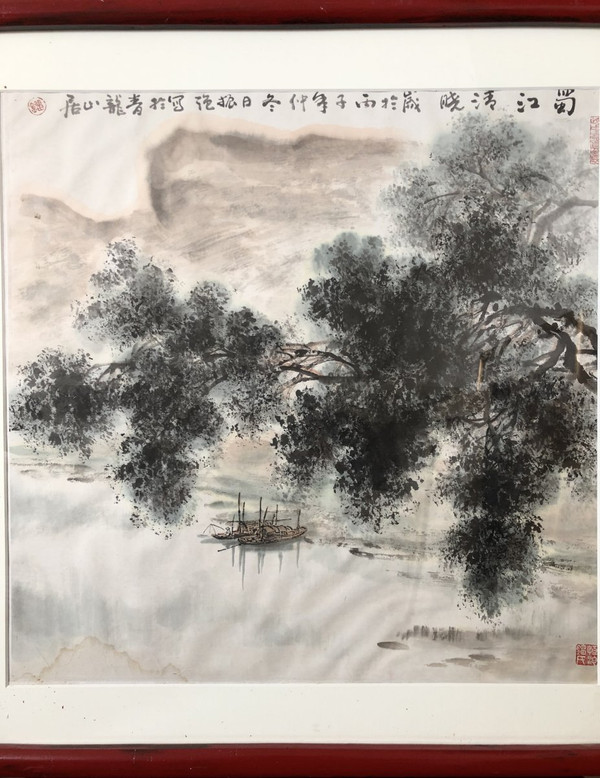 蜀江清晓 岁于丙子年仲冬日振强写于青龙山居